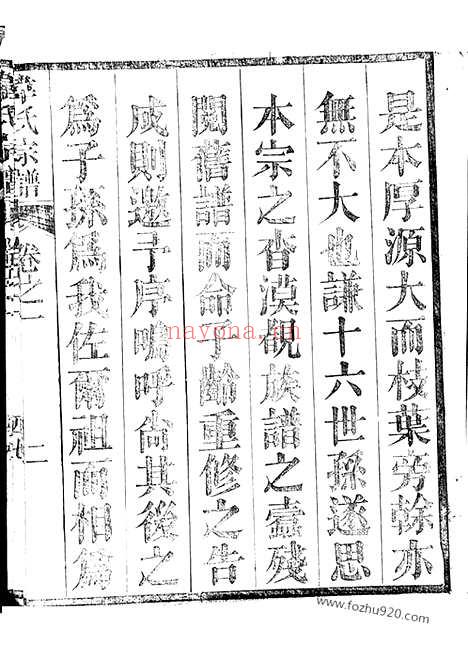 是本厚源大而枝葉旁餘亦
無不大也謙十六世孫遂思
本宗之杳漠覩族譜之蠹殘
閱舊譜而命子齡重修之告
成則邀予序嗚呼尙其後之
爲子孫爲我佐爾祖而相爲
氏宗譜
卷之一
二
nayona.cn
www.fozhu920.com